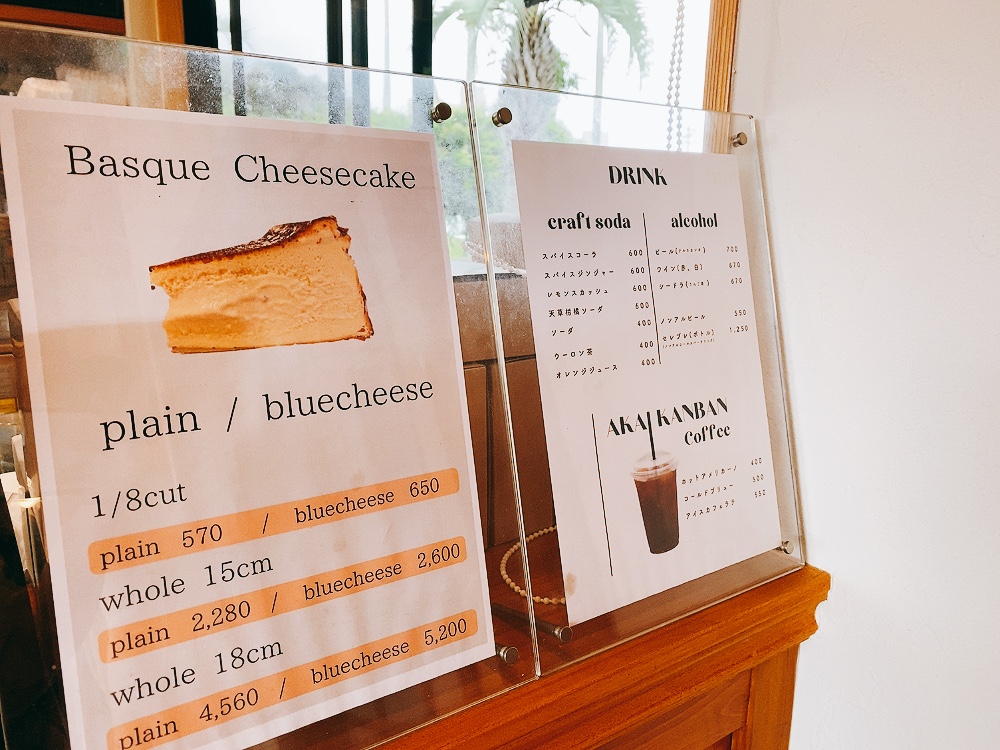 Basque Cheesecake
plain / bluecheese
1/8cut
plain 570 / bluecheese 650
whole 15cm
plain 2,280 / bluecheese 2,600
whole 18cm
plain 4,560 / bluecheese 5,200
DRINK
craft soda
スパイスコーラ 600
スパイスジンジャー 600
レモンスカッシュ 600
天草柑橘ソーダ 600
ソーダ 400
ウーロン茶 400
オレンジジュース 400
alcohol
ビール 700
ワイン(赤、白) 670
シードラ(りんご酒) 670
ノンアルビール 550
セレブレ(ボトル) 1,250
AKAI KANBAN
Coffee
ホットアメリカーノ 400
コールドブリュー 500
アイスカフェラテ 550